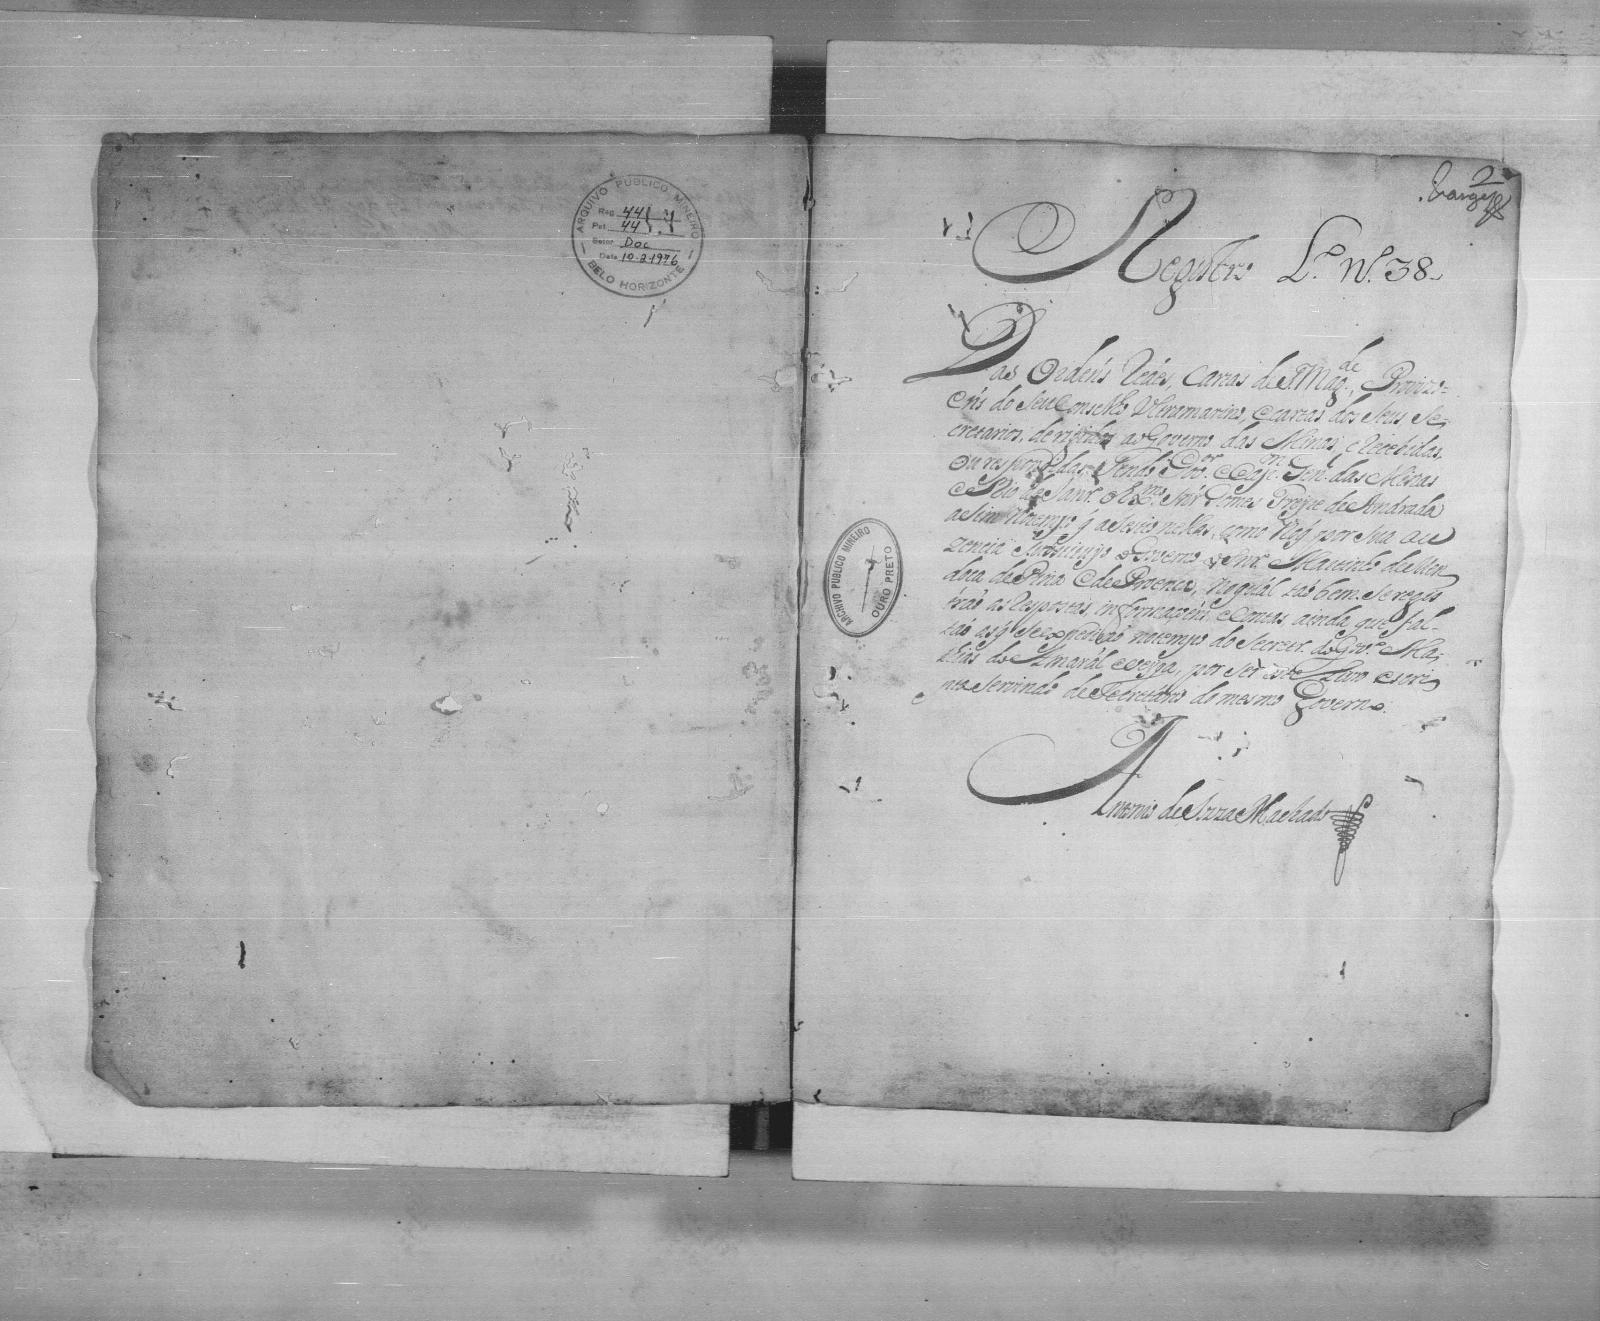 ARQUIVO PUBLICO MINEIRO
Reg. 44
Pat. 44
Setor Doc
Data 10-2-1976
BELO HORIZONTE
2
Registro L.º N.º 38.
Das Ordens Reaes, Cartas de S. Mag.de, Provizo=
ens do seu Conselho Ultramarino, e cartas dos seus Se=
cretarios, derigidas ao Governo das Minas, e recebidas,
ou respondidas, sendo Gov.or e Cap.m Gen.l das Mesas
e Rio de Janr.º o Ex.mo Snr Gomes Freyre de Andrada
asim no tempo q asestio nellas, como no q por sua au
zencia sustituyo o Governo o Snr. Martinho de Men
doca de Pina e de Proença, no qual tão bem se regis
trão as respostas, informações, e contas, ainda que fal=
tão as q se expedirão no tempo do Secretr.º do Gov.º Ma=
thias do Amaral e Veyga, por ser este Livro escri
pto servindo de Secretario do mesmo Governo.
Antonio de Souza Machado
ARCHIVO PUBLICO MINEIRO
OURO PRETO